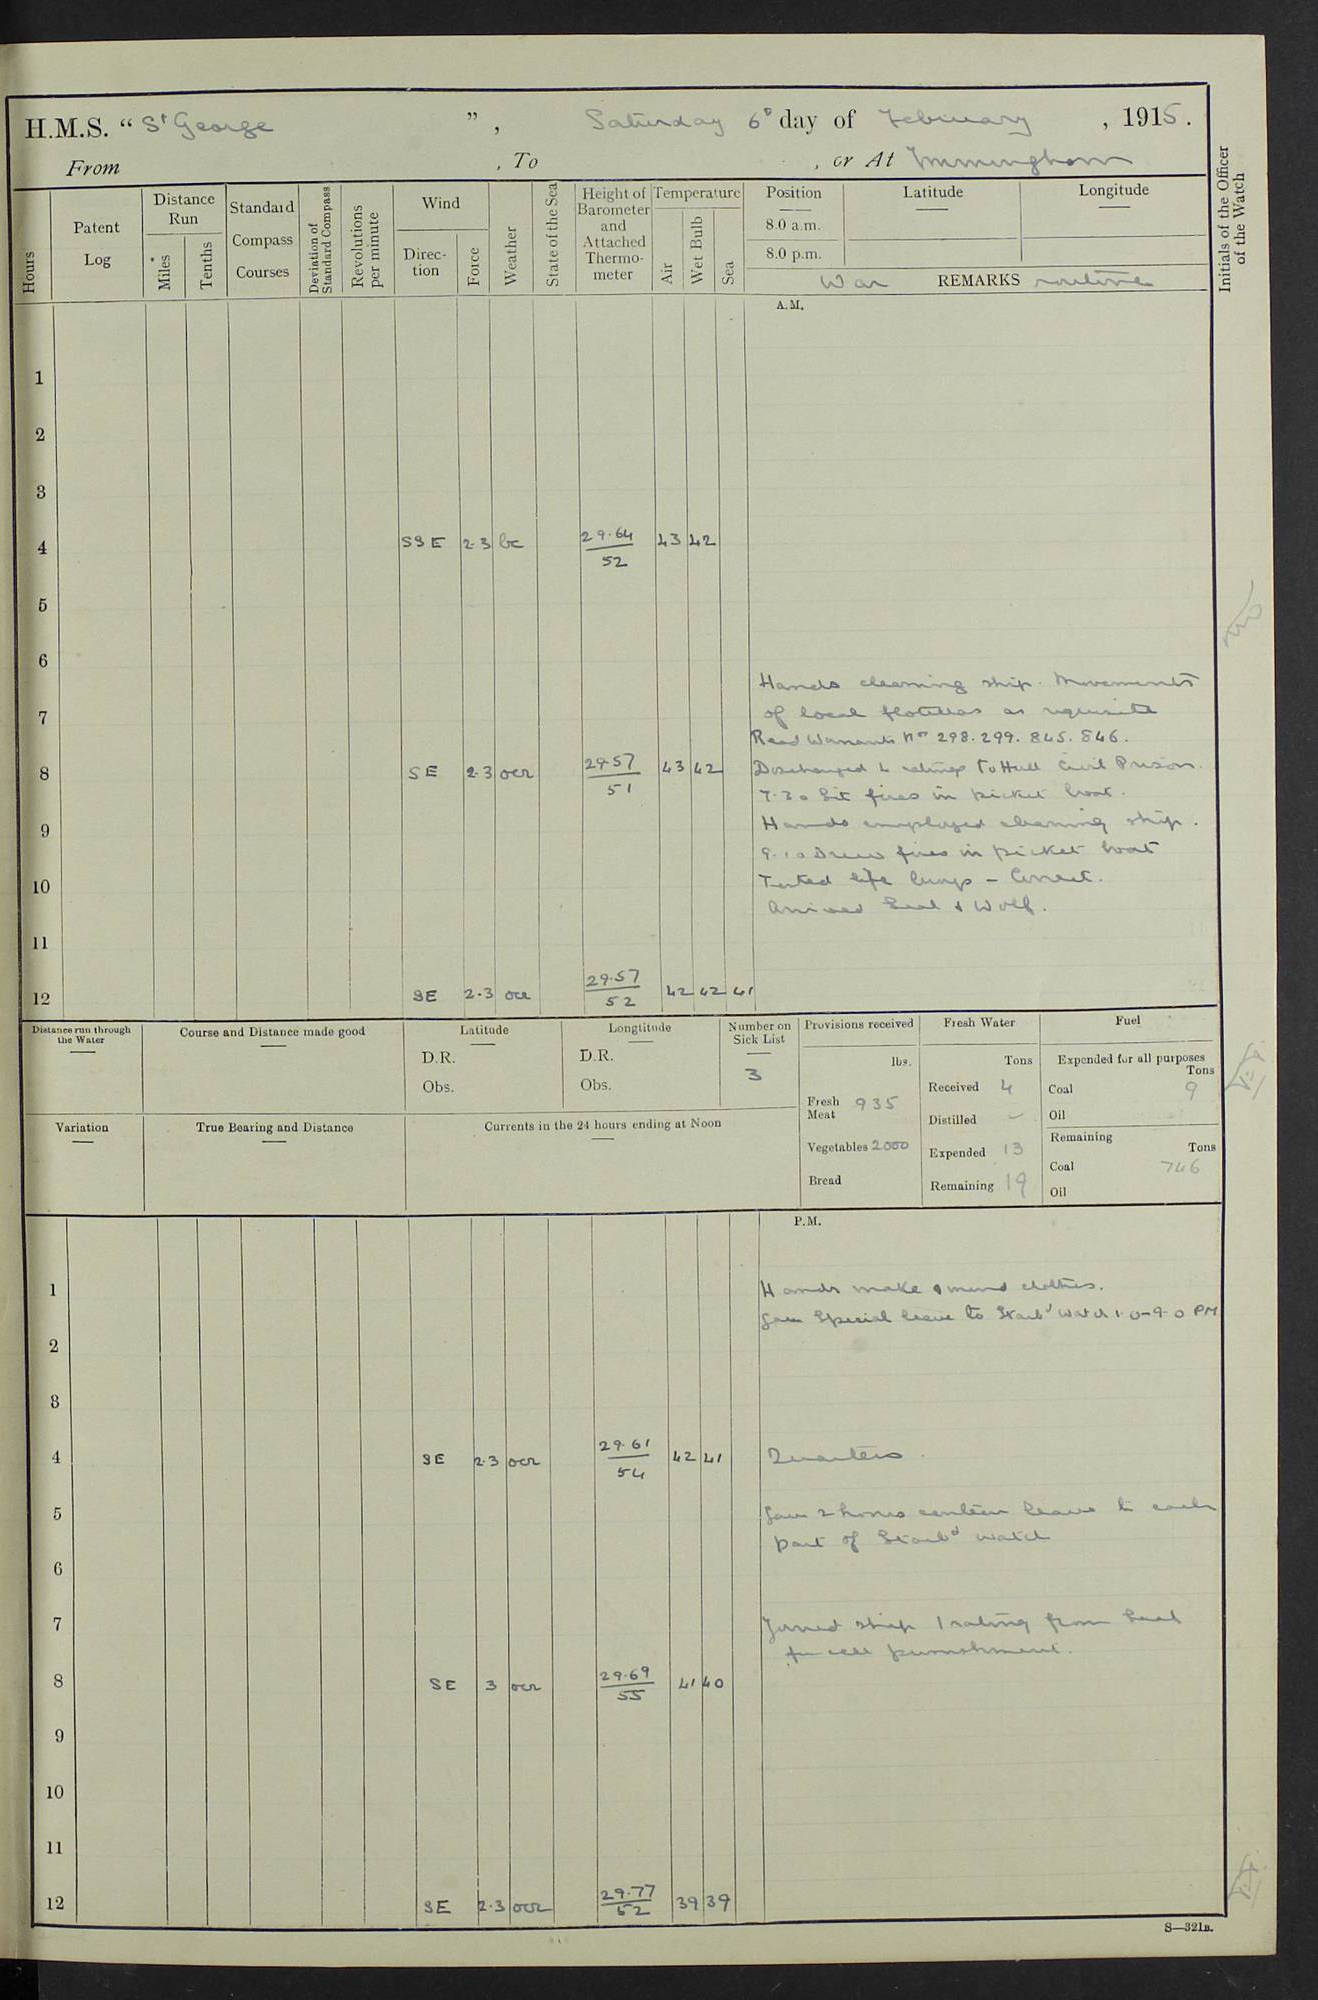 H.M.S. “ St George ” , Saturday 6th day of February , 1915 .
From , To , or At Immingham
Hours
Patent Log
Distance Run
Miles
Tenths
Standard Compass Courses
Deviation of Standard Compass
Revolutions per minute
Wind
Direction
Force
Weather
State of the Sea
Height of Barometer and Attached Thermometer
Temperature
Air
Wet Bulb
Sea
Position
8.0 a.m.
8.0 p.m.
Latitude
Longitude
War REMARKS routine
Initials of the Officer of the Watch
A.M.
1
2
3
4 SSE 2·3 bc 29·64 52 43 42
5
6
Hands cleaning ship. Movements
7 of local flotillas as requisite
Read Warrants Nos 298. 299. 845. 846.
8 SE 2·3 ocr 29·57 51 43 42 Discharged 4 ratings to Hull Civil Prison.
7.30 Lit fires in picket boat.
9 Hands employed cleaning ship.
9.10 Drew fires in picket boat
10 Tested life buoys – Correct.
Arrived Seal & Wolf.
11
12 SE 2·3 ocr 29·57 52 42 42 41
Distance run through the Water
Course and Distance made good
Latitude
D.R.
Obs.
Longtitude
D.R.
Obs.
Number on Sick List
3
Provisions received
lbs.
Fresh Meat 935
Vegetables 2000
Bread
Fresh Water
Tons
Received 4
Distilled –
Expended 13
Remaining 19
Fuel
Expended for all purposes
Tons
Coal 9
Oil
Remaining
Tons
Coal 746
Oil
Variation
True Bearing and Distance
Currents in the 24 hours ending at Noon
P.M.
1 Hands make & mend clothes.
Gave Special leave to Starbd Watch 1·0–9·0 PM
2
3
4 SE 2·3 ocr 29·61 54 42 41 Quarters.
5 Gave 2 hours canteen leave to each
part of Starbd watch
6
7 Joined ship 1 rating from Seal
for cell punishment.
8 SE 3 ocr 29·69 55 41 40
9
10
11
12 SE 2·3 ocr 29·77 52 39 39
S—321B.